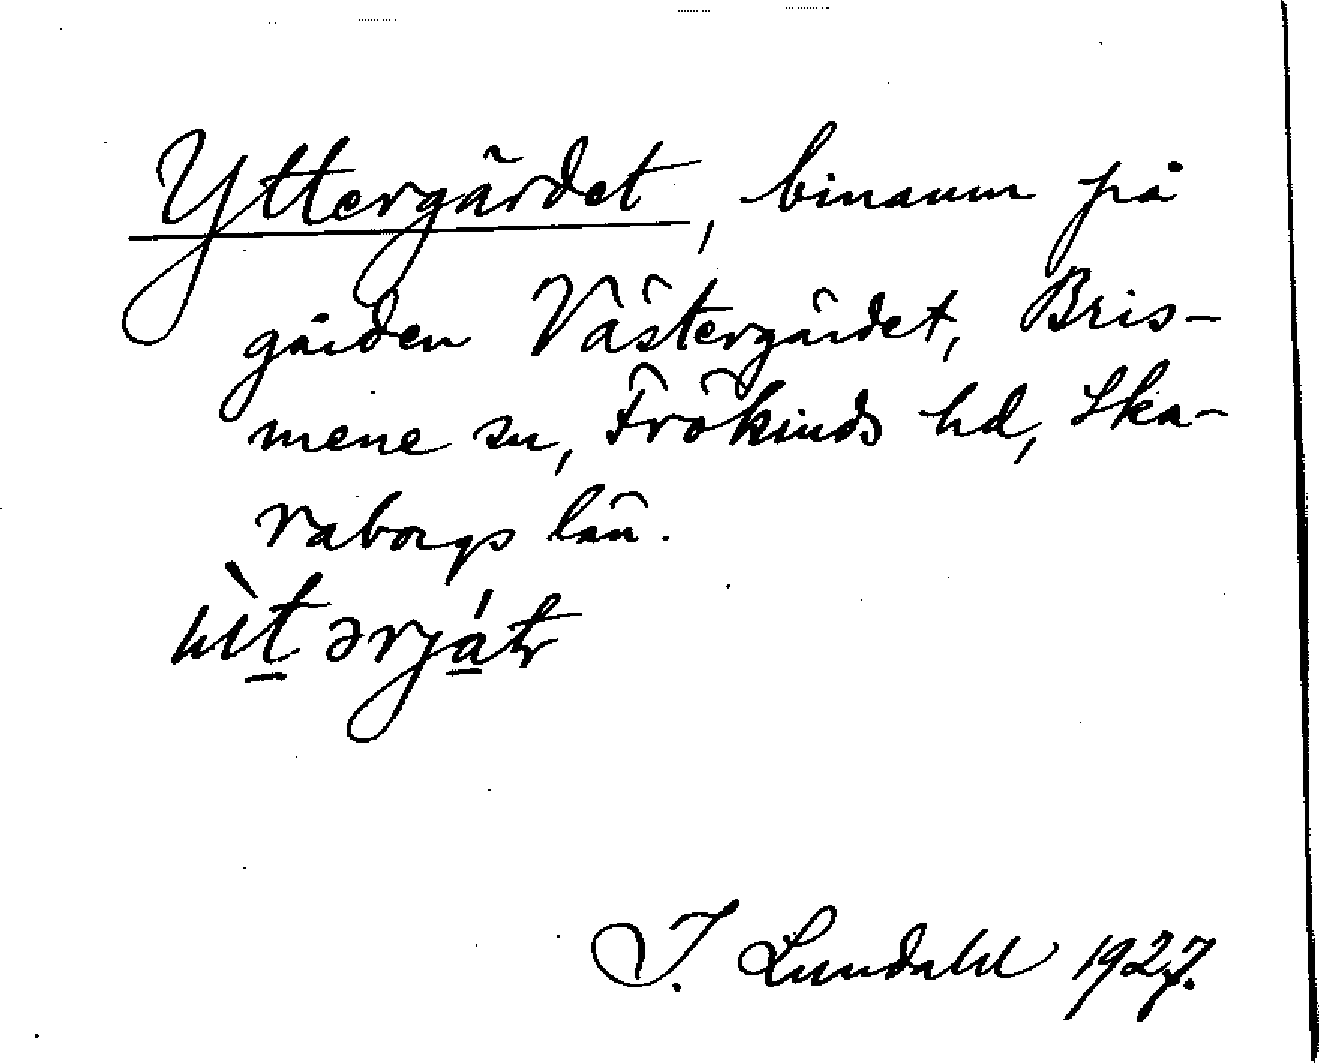 Yttergärdet, binamn på
gården Västergärdet, Bris-
mene sn, Frökinds hd, Ska-
raborgs län.
I. Lundahl 1927.